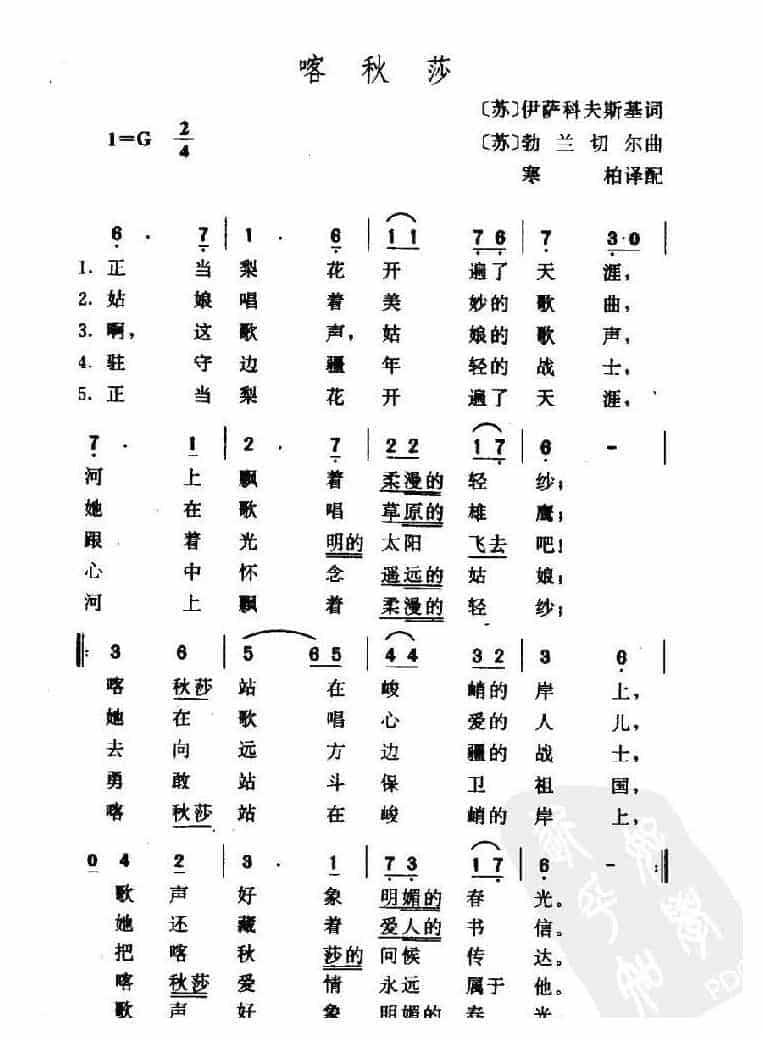 喀秋莎
〔苏〕伊萨科夫斯基词
1=G 2/4
〔苏〕勃兰切尔曲
寒柏译配
6 · 7 | 1 · 6 | 1 1 7 6 | 7 3·0 |
1. 正当梨花开遍了天涯，
2. 姑娘唱着美妙的歌曲，
3. 啊，这歌声，姑娘的歌声，
4. 驻守边疆年轻的战士，
5. 正当梨花开遍了天涯，
7 · 1 | 2 · 7 | 2 2 1 7 | 6 - |
河上飘着柔漫的轻纱；
她在歌唱草原的雄鹰；
跟着光明的太阳飞去吧！
心中怀念遥远的姑娘；
河上飘着柔漫的轻纱；
‖: 3 6 | 5 6 5 | 4 4 3 2 | 3 6 |
喀秋莎站在峻峭的岸上，
她在歌唱心爱的人儿，
去向远方边疆的战士，
勇敢站斗保卫祖国，
喀秋莎站在峻峭的岸上，
0 4 2 | 3 · 1 | 7 3 1 7 | 6 - :‖
歌声好象明媚的春光。
她还藏着爱人的书信。
把喀秋莎的问候传达。
喀秋莎爱情永远属于他。
歌声好象明媚的春光